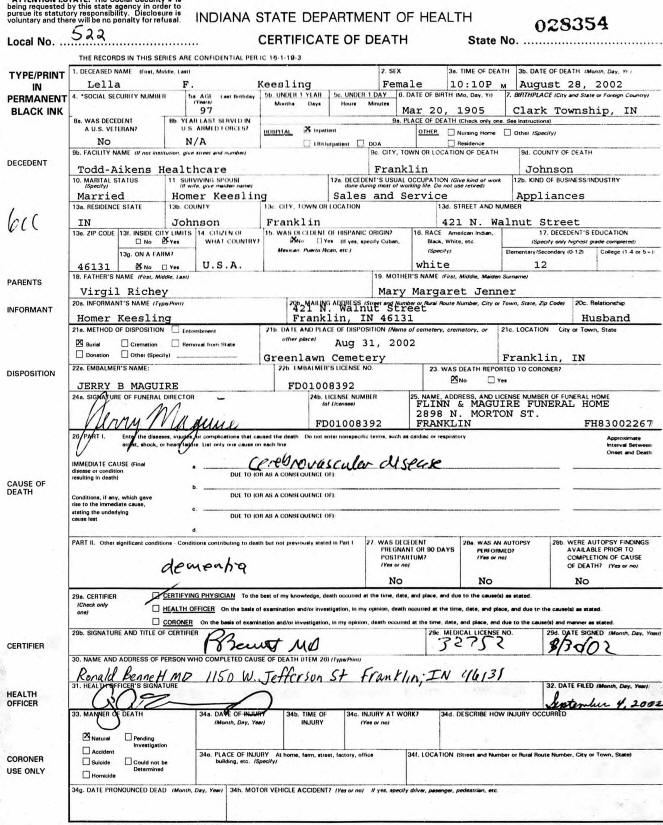 being requested by this state agency in order to
pursue its statutory responsibility. Disclosure is
voluntary and there will be no penalty for refusal.
INDIANA STATE DEPARTMENT OF HEALTH
028354
Local No. 522
CERTIFICATE OF DEATH
State No.
THE RECORDS IN THIS SERIES ARE CONFIDENTIAL PER IC 16-1-19-3
TYPE/PRINT
IN
PERMANENT
BLACK INK
1. DECEASED NAME (First, Middle, Last)
Lella F. Keesling
2. SEX
Female
3a. TIME OF DEATH
10:10P M
3b. DATE OF DEATH (Month, Day, Yr.)
August 28, 2002
4. *SOCIAL SECURITY NUMBER
5a. AGE Last Birthday (Years)
97
5b. UNDER 1 YEAR
Months Days
5c. UNDER 1 DAY
Hours Minutes
6. DATE OF BIRTH (Mo, Day, Yr)
Mar 20, 1905
7. BIRTHPLACE (City and State or Foreign Country)
Clark Township, IN
8a. WAS DECEDENT A U.S. VETERAN?
No
8b. YEAR LAST SERVED IN U.S. ARMED FORCES?
N/A
9a. PLACE OF DEATH (Check only one. See instructions)
HOSPITAL X Inpatient ER/Outpatient DOA
OTHER Nursing Home Other (Specify) Residence
DECEDENT
9b. FACILITY NAME (If not institution, give street and number)
Todd-Aikens Healthcare
9c. CITY, TOWN OR LOCATION OF DEATH
Franklin
9d. COUNTY OF DEATH
Johnson
10. MARITAL STATUS (Specify)
Married
11. SURVIVING SPOUSE (If wife, give maiden name)
Homer Keesling
12a. DECEDENT'S USUAL OCCUPATION (Give kind of work done during most of working life. Do not use retired)
Sales and Service
12b. KIND OF BUSINESS/INDUSTRY
Appliances
13a. RESIDENCE STATE
IN
13b. COUNTY
Johnson
13c. CITY, TOWN OR LOCATION
Franklin
13d. STREET AND NUMBER
421 N. Walnut Street
13e. ZIP CODE
46131
13f. INSIDE CITY LIMITS
No X Yes
13g. ON A FARM?
X No Yes
14. CITIZEN OF WHAT COUNTRY?
U.S.A.
15. WAS DECEDENT OF HISPANIC ORIGIN?
X No Yes (If yes, specify Cuban, Mexican, Puerto Rican, etc.)
16. RACE American Indian, Black, White, etc. (Specify)
white
17. DECEDENT'S EDUCATION
(Specify only highest grade completed)
Elementary/Secondary (0-12) College (1-4 or 5+)
12
PARENTS
18. FATHER'S NAME (First, Middle, Last)
Virgil Richey
19. MOTHER'S NAME (First, Middle, Maiden Surname)
Mary Margaret Jenner
INFORMANT
20a. INFORMANT'S NAME (Type/Print)
Homer Keesling
20b. MAILING ADDRESS (Street and Number or Rural Route Number, City or Town, State, Zip Codes)
421 N. Walnut Street
Franklin, IN 46131
20c. Relationship
Husband
21a. METHOD OF DISPOSITION Entombment
X Burial Cremation Removal from State
Donation Other (Specify)
21b. DATE AND PLACE OF DISPOSITION (Name of cemetery, crematory, or other place)
Aug 31, 2002
Greenlawn Cemetery
21c. LOCATION City or Town, State
Franklin, IN
DISPOSITION
22a. EMBALMER'S NAME:
JERRY B MAGUIRE
22b. EMBALMER'S LICENSE NO.
FD01008392
23. WAS DEATH REPORTED TO CORONER?
X No Yes
24a. SIGNATURE OF FUNERAL DIRECTOR
Jerry Maguire
24b. LICENSE NUMBER (of Licensee)
FD01008392
25. NAME, ADDRESS, AND LICENSE NUMBER OF FUNERAL HOME
FLINN & MAGUIRE FUNERAL HOME
2898 N. MORTON ST.
FRANKLIN FH83002267
26. PART I. Enter the diseases, injuries, or complications that caused the death. Do not enter nonspecific terms, such as cardiac or respiratory
arrest, shock, or heart failure. List only one cause on each line
Approximate Interval Between Onset and Death
CAUSE OF DEATH
IMMEDIATE CAUSE (Final disease or condition resulting in death)
a. cerebrovascular disease
DUE TO (OR AS A CONSEQUENCE OF):
b.
DUE TO (OR AS A CONSEQUENCE OF):
Conditions, if any, which gave rise to the immediate cause, stating the underlying cause last
c.
DUE TO (OR AS A CONSEQUENCE OF):
d.
PART II. Other significant conditions - Conditions contributing to death but not previously stated in Part I.
dementia
27. WAS DECEDENT PREGNANT OR 90 DAYS POSTPARTUM? (Yes or no)
No
28a. WAS AN AUTOPSY PERFORMED? (Yes or no)
No
28b. WERE AUTOPSY FINDINGS AVAILABLE PRIOR TO COMPLETION OF CAUSE OF DEATH? (Yes or no)
No
29a. CERTIFIER (Check only one)
CERTIFYING PHYSICIAN To the best of my knowledge, death occurred at the time, date, and place, and due to the cause(s) as stated.
HEALTH OFFICER On the basis of examination and/or investigation, in my opinion, death occurred at the time, date, and place, and due to the cause(s) as stated.
CORONER On the basis of examination and/or investigation, in my opinion, death occurred at the time, date, and place, and due to the cause(s) and manner as stated.
CERTIFIER
29b. SIGNATURE AND TITLE OF CERTIFIER
RBennett MD
29c. MEDICAL LICENSE NO.
32752
29d. DATE SIGNED (Month, Day, Year)
30. NAME AND ADDRESS OF PERSON WHO COMPLETED CAUSE OF DEATH (ITEM 26) (Type/Print)
Ronald Bennett MD 1150 W. Jefferson St Franklin, IN 46131
HEALTH OFFICER
31. HEALTH OFFICER'S SIGNATURE
32. DATE FILED (Month, Day, Year)
September 4, 2002
33. MANNER OF DEATH
X Natural Pending Investigation
Accident
Suicide Could not be Determined
Homicide
34a. DATE OF INJURY (Month, Day, Year)
34b. TIME OF INJURY
34c. INJURY AT WORK? (Yes or no)
34d. DESCRIBE HOW INJURY OCCURRED
CORONER USE ONLY
34e. PLACE OF INJURY At home, farm, street, factory, office building, etc. (Specify)
34f. LOCATION (Street and Number or Rural Route Number, City or Town, State)
34g. DATE PRONOUNCED DEAD (Month, Day, Year)
34h. MOTOR VEHICLE ACCIDENT? (Yes or no) If yes, specify driver, passenger, pedestrian, etc.